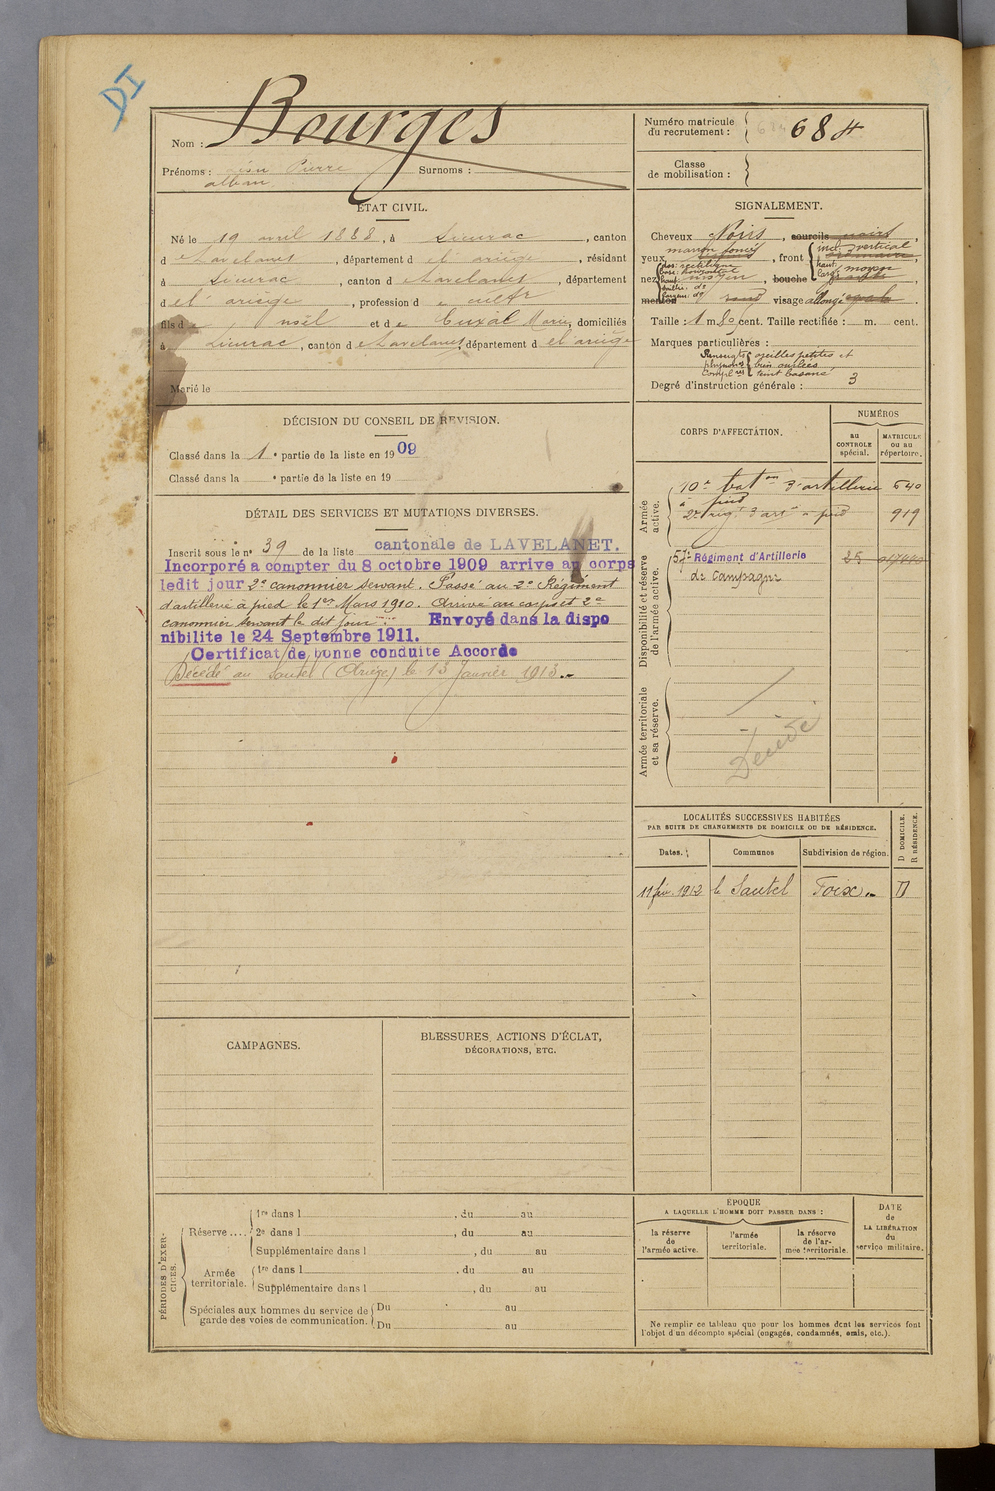 DI
Nom : Bourges
Prénoms : Jean Pierre Surnoms :
alban
Numéro matricule
du recrutement : 684
Classe
de mobilisation :
ÉTAT CIVIL.
Né le 19 avril 1888, à Lieurac, canton
de Lavelanet, département de l'ariège, résidant
à Lieurac, canton de Lavelanet, département
de l'ariège, profession de cultr
fils de noël et de Cuxal Marie, domiciliés
à Lieurac, canton de Lavelanet, département de l'ariège
Marié le
SIGNALEMENT.
Cheveux Noirs, sourcils noirs,
yeux marron foncé, front incl. vertical
haut.
larg. moyen
nez dos: rectiligne
base: horizontal
haut: moyen, bouche
saillie: do
largeur: do
menton rond visage allongé
Taille : 1 m. 80 cent. Taille rectifiée : m. cent.
Marques particulières :
Renseigts oreilles petites et
physion. bien ourlées
Complres teint basané
Degré d'instruction générale : 3
DÉCISION DU CONSEIL DE REVISION.
Classé dans la 1e partie de la liste en 1909
Classé dans la e partie de la liste en 19
DÉTAIL DES SERVICES ET MUTATIONS DIVERSES.
Inscrit sous le n° 39 de la liste cantonale de LAVELANET.
Incorporé a compter du 8 octobre 1909 arrive au corps
ledit jour 2e canonnier servant. Passé au 2e Régiment
d'artillerie à pied le 1er Mars 1910. Arrivé au corps et 2e
canonnier servant le dit jour. Envoyé dans la dispo
nibilite le 24 Septembre 1911.
Certificat de bonne conduite Accordé
Décédé au Sautel (Ariège) le 13 Janvier 1913.
CORPS D'AFFECTATION.
NUMÉROS
au
CONTROLE
spécial.
MATRICULE
ou au
répertoire.
Armée
active.
10e baton d'artillerie 540
à pied
2e rég. d'art. à pied 919
Disponibilité et réserve
de l'armée active.
57e Régiment d'Artillerie 25
de Campagne
Armée territoriale
et sa réserve.
Décédé
LOCALITÉS SUCCESSIVES HABITÉES
PAR SUITE DE CHANGEMENTS DE DOMICILE OU DE RÉSIDENCE.
Dates. Communes Subdivision de région. D DOMICILE. R RÉSIDENCE.
11 fév. 1912 le Sautel Foix D
CAMPAGNES.
BLESSURES, ACTIONS D'ÉCLAT,
DÉCORATIONS, ETC.
PÉRIODES D'EXER-
CICES.
Réserve ....
1re dans l , du au
2e dans l , du au
Supplémentaire dans l , du au
Armée
territoriale.
1re dans l , du au
Supplémentaire dans l , du au
Spéciales aux hommes du service de
garde des voies de communication.
Du au
Du au
ÉPOQUE
A LAQUELLE L'HOMME DOIT PASSER DANS :
la réserve
de
l'armée active.
l'armée
territoriale.
la réserve
de l'ar-
mée territoriale.
DATE
de
LA LIBÉRATION
du
service militaire.
Ne remplir ce tableau que pour les hommes dont les services font
l'objet d'un décompte spécial (engagés, condamnés, omis, etc.).